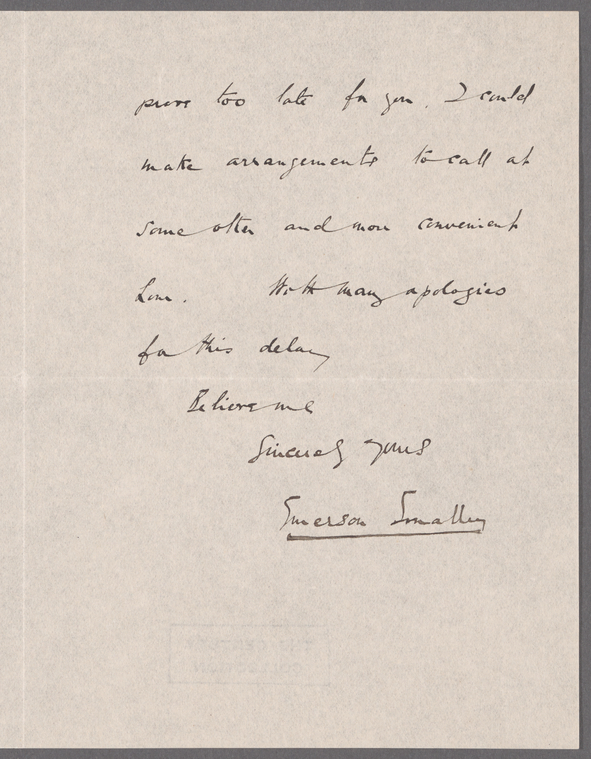 prove too late for you. I could
make arrangements to call at
some other and more convenient
hour. With many apologies
for this delay
Believe me
Sincerely yours
Emerson Smalley
THE CENTURY
COLLECTION